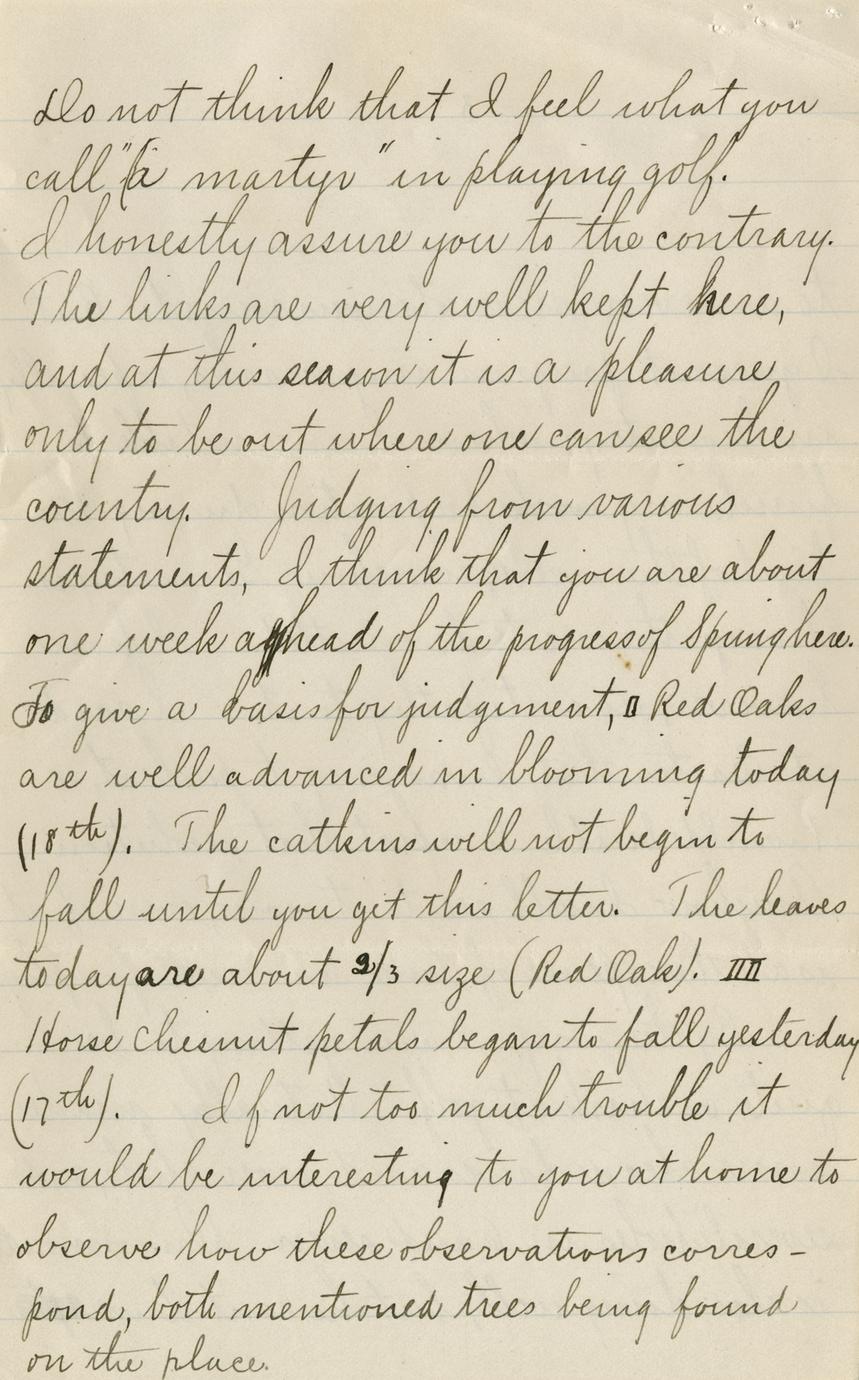 Do not think that I feel what you
call "a martyr" in playing golf.
I honestly assure you to the contrary.
The links are very well kept here,
and at this season it is a pleasure
only to be out where one can see the
country. Judging from various
statements, I think that you are about
one week ahead of the progress of Spring here.
To give a basis for judgement, I Red Oaks
are well advanced in blooming today
(18th). The catkins will not begin to
fall until you get this letter. The leaves
today are about 2/3 size (Red Oak). II
Horse Chesnut petals began to fall yesterday
(17th). If not too much trouble it
would be interesting to you at home to
observe how these observations corres-
pond, both mentioned trees being found
on the place.